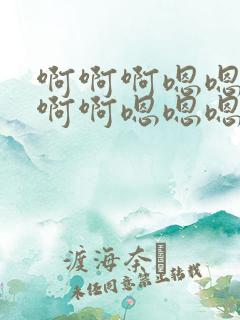 啊啊啊嗯嗯
啊啊嗯嗯嗯
渡海本
未经同意禁止转载